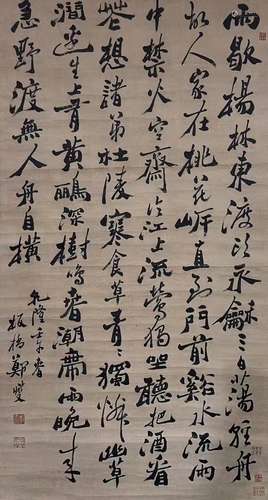 雨歇楊林東渡頭永龢三日蕩輕舟
故人家在桃花岸直到門前谿水流雨
中禁火空齋冷江上流鶯獨坐聽把酒看
花想諸弟杜陵寒食草青〻獨憐幽草
澗邊生上有黃鸝深樹鳴春潮帶雨晚來
急野渡無人舟自橫
乾隆壬午春
板橋鄭燮